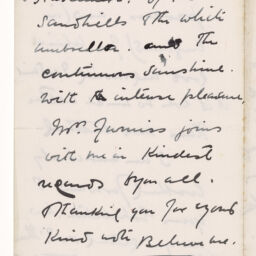 Sandhills & the white
umbrella. and the
continuous sunshine.
with intense pleasure.
Mrs. Furniss joins
with me in kindest
regards to you all.
Thanking you for your
kind note Believe me.